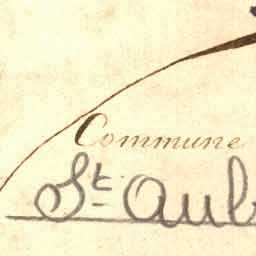 Commune
St Aub